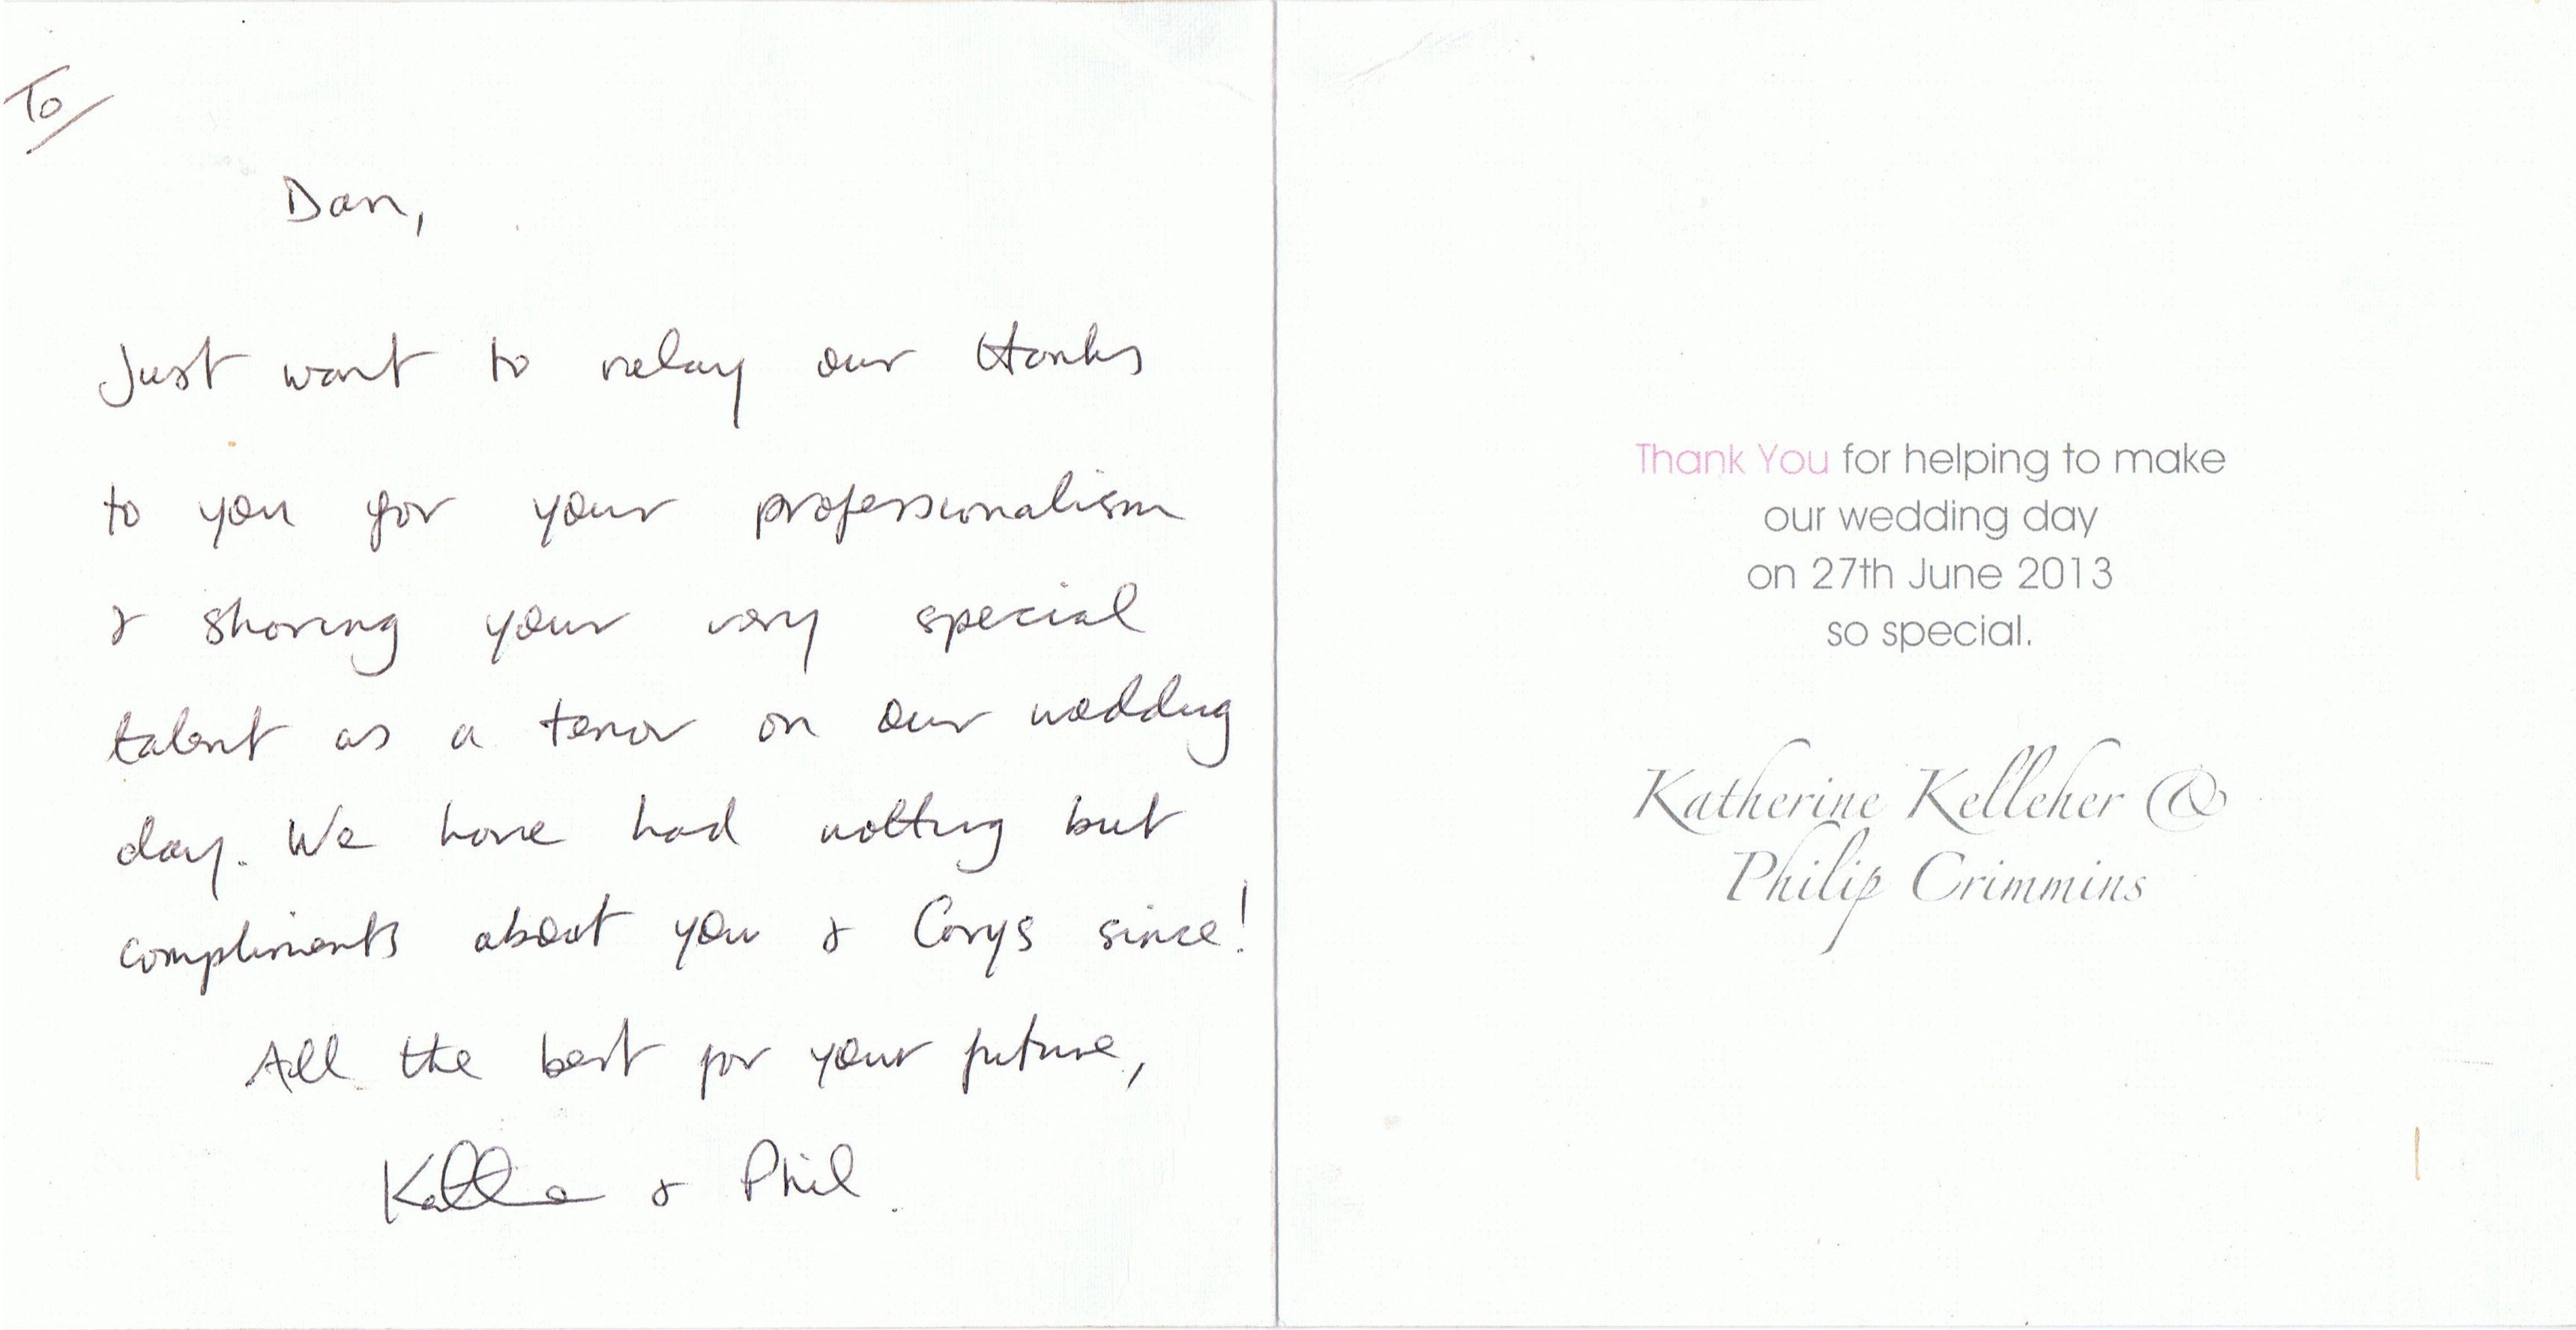 To
Dan,
Just want to relay our thanks
to you for your professionalism
& sharing your very special
talent as a tenor on our wedding
day. We have had nothing but
compliments about you & Corys since!
All the best for your future,
& Phil.
Thank You for helping to make
our wedding day
on 27th June 2013
so special.
Katherine Kelleher &
Philip Crimmins